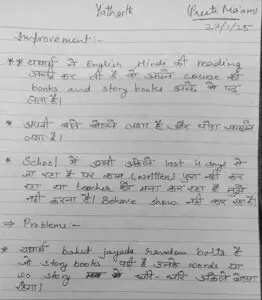 Yatharth (Preeti Ma'am)
22/1/25
Improvement:-
** यथार्थ ने English Hindi की reading
कर ली है वे अपने course की
books and story books अच्छे से पढ़
लेता है।
* अपनी बातें बोलने लगा है। और थोड़ा समझने
लगा है।
* School में अभी last 4 days से
जा रहा है पर काम (written) पूरा नहीं कर
रहा या teacher को मना कर रहा है मुझे
नहीं करना है। Behave show नहीं कर रहा है।
⇒ Problems:-
* यथार्थ bahut jayada random bolta है
जो story books पढ़ी है उनके words या
wo story धीरे-धीरे अकेले बोलता
रहेगा।